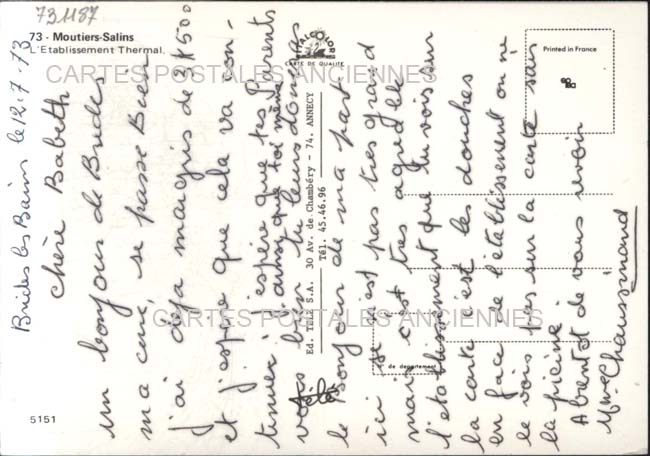 731187
73 - Moutiers-Salins
L'Etablissement Thermal.
CARTE DE QUALITÉ
Printed in France
CARTES POSTALES ANCIENNES
CARTES POSTALES ANCIENNES
Ed. TELE S.A. 30 Av. de Chambéry - 74. ANNECY
Tél. 45.46.96
N° de département
5151
Brides les Bains le 12.7.73
Chère Babeth
un bonjour de Brides
ma cure, se passe Bien
J'ai déja maigris de 3K500
et j'espère que cela va con-
tinuer. J'espère que tes Parents
ainsi que toi même
vous bien tu leurs donneras
le bonjour de ma part
ici se n'est pas très grand
mais c'est très agréable
l'établissement que tu vois sur
la carte c'est les douches
en face de l'établissement on ne
le vois pas sur la carte sur
la piscine
A bientôt de vous revoir
Mme Chaussinand